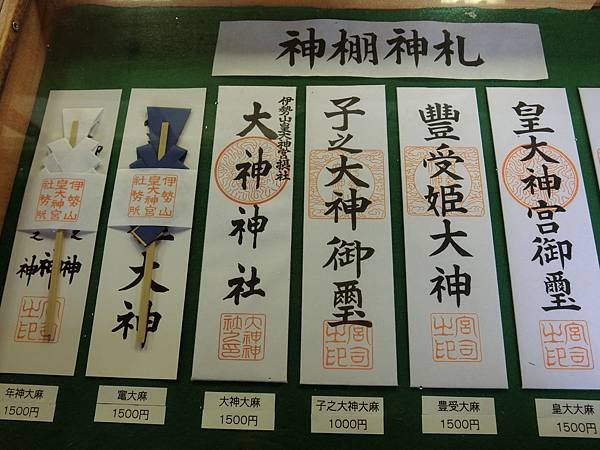 神棚神札
伊勢山
皇大神宮
社務所
神神神
宮司
之印
年神大麻
1500円
伊勢山
皇大神宮
社務所
大神
竃大麻
1500円
伊勢山皇大神宮摂社
大神神社
大神神
社之印
大神大麻
1500円
子之大神御璽
宮司
之印
子之大神大麻
1000円
豐受姫大神
宮司
之印
豊受大麻
1500円
皇大神宮御璽
宮司
之印
皇大大麻
1500円